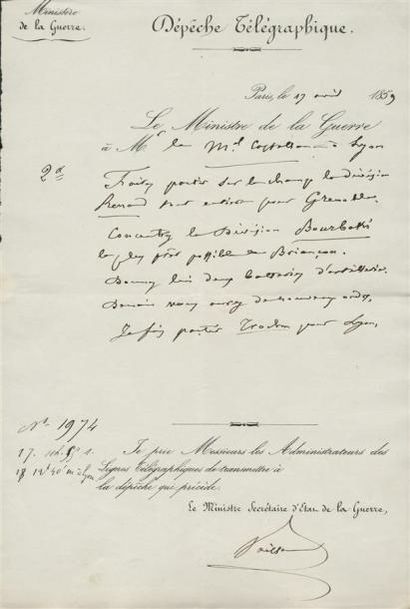 Ministère
de la Guerre.
Dépêche Télégraphique.
Paris, le 17 avril 1859
Le Ministre de la Guerre
à Mr le Mal Castellane à Lyon
2d
Faites partir sur le champ la division
Renaud tout entière pour Grenoble.
Concentrez la Division Bourbaki
le plus près possible de Briançon.
Donnez lui deux batteries d'artillerie.
Demain vous aurez de nouveaux ordres.
Je fais partir Trochu pour Lyon.
No 1974
17.
Je prie Messieurs les Administrateurs des
18
Lignes Télégraphiques de transmettre à
la dépêche qui précède.
Le Ministre Secrétaire d'Etat de la Guerre,
Vaillant